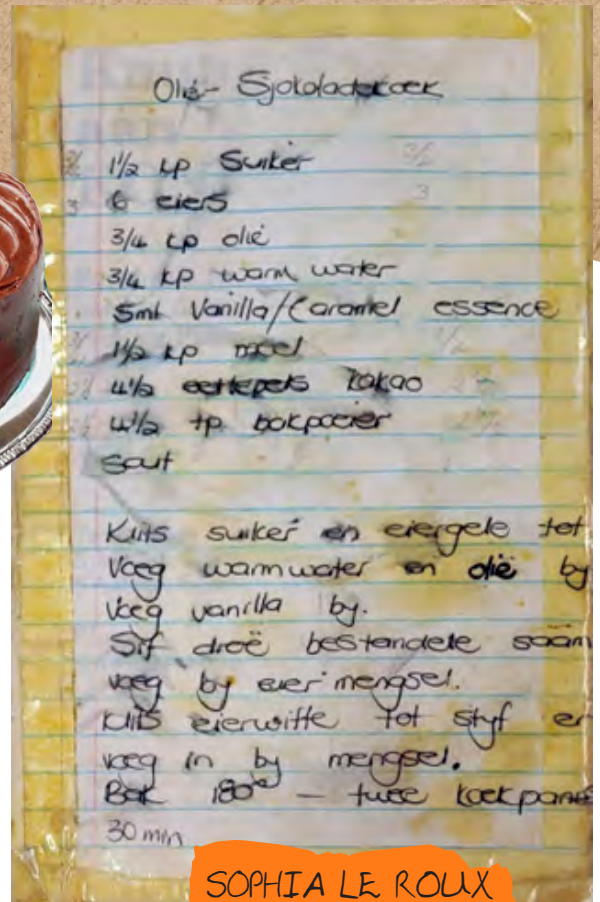 Olie - Sjokoladekoek
1½ kp Suiker
3 6 eiers 3
3/4 kp olie
3/4 kp warm water
5ml Vanilla/Caramel essence
1½ kp meel
4½ eetlepels kakao
4½ tp bakpoeier
Sout
Klits suiker en eiergele tot
Voeg warmwater en olië by
Voeg vanilla by.
Sif droë bestandele saam
voeg by eier mengsel.
Klits eierwitte tot styf en
voeg in by mengsel.
Bak 180° — twee koekpanne
30 min
SOPHIA LE ROUX